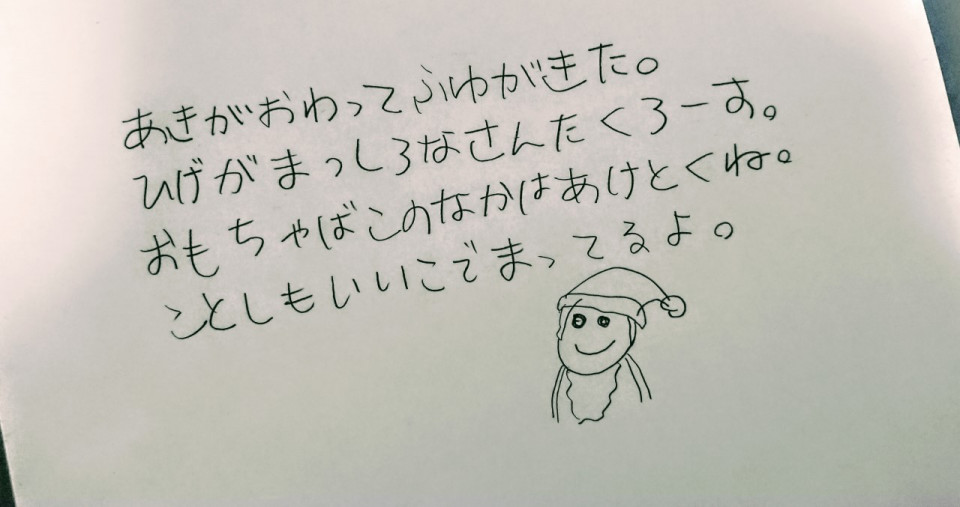 あきがおわってふゆがきた。
ひげがまっしろなさんたくろーす。
おもちゃばこのなかはあけとくね。
ことしもいいこでまってるよ。